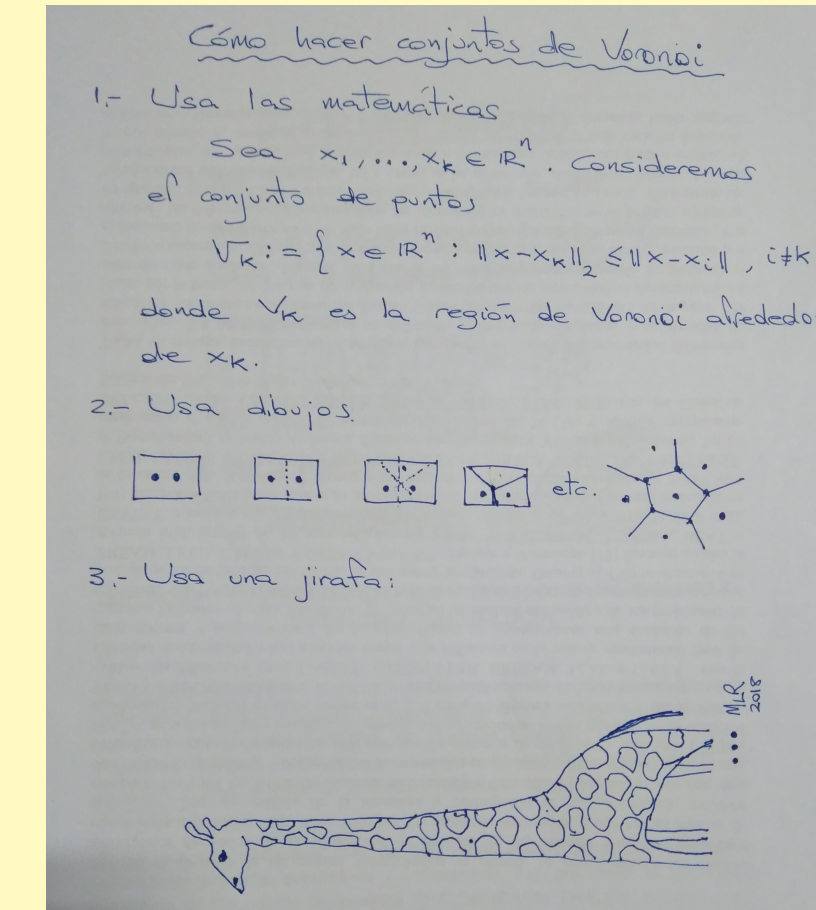 Cómo hacer conjuntos de Voronoi
1.- Usa las matemáticas
Sea x₁,...,xₖ ∈ ℝⁿ. Consideremos
el conjunto de puntos
Vₖ := { x ∈ ℝⁿ : ||x-xₖ||₂ ≤ ||x-xᵢ||, i≠k
donde Vₖ es la región de Voronoi alrededo
de xₖ.
2.- Usa dibujos.
etc.
3.- Usa una jirafa:
MLR
2018